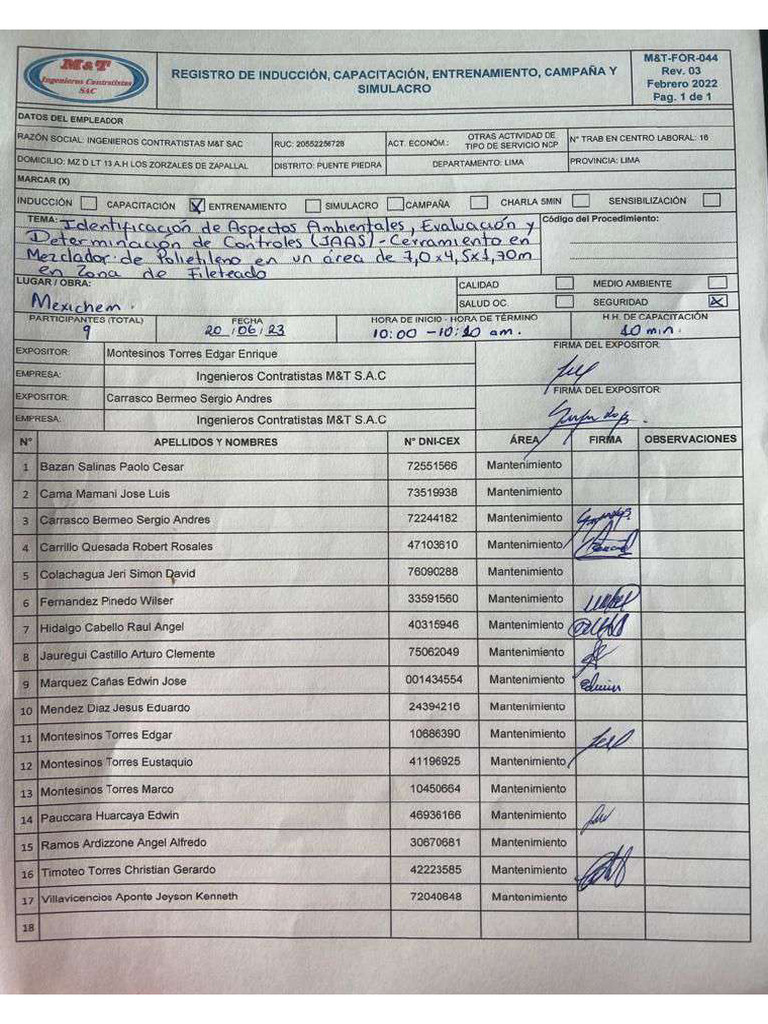 M&T
Ingenieros Contratistas
SAC
REGISTRO DE INDUCCIÓN, CAPACITACIÓN, ENTRENAMIENTO, CAMPAÑA Y
SIMULACRO
M&T-FOR-044
Rev. 03
Febrero 2022
Pag. 1 de 1
DATOS DEL EMPLEADOR
RAZÓN SOCIAL: INGENIEROS CONTRATISTAS M&T SAC RUC: 20552256728 ACT. ECONÓM.: OTRAS ACTIVIDAD DE TIPO DE SERVICIO NCP N° TRAB EN CENTRO LABORAL: 16
DOMICILIO: MZ D LT 13 A.H LOS ZORZALES DE ZAPALLAL DISTRITO: PUENTE PIEDRA DEPARTAMENTO: LIMA PROVINCIA: LIMA
MARCAR (X)
INDUCCIÓN CAPACITACIÓN X ENTRENAMIENTO SIMULACRO CAMPAÑA CHARLA 5MIN SENSIBILIZACIÓN
TEMA: Identificación de Aspectos Ambientales, Evaluación y
Determinación de Controles (IAAS) - Cerramiento en
Mezclador de Polietileno en un área de 7,0x4,5x1,70m
en Zona de Fileteado
Código del Procedimiento:
LUGAR / OBRA:
Mexichem.
CALIDAD MEDIO AMBIENTE
SALUD OC. SEGURIDAD X
PARTICIPANTES (TOTAL) FECHA HORA DE INICIO - HORA DE TÉRMINO H.H. DE CAPACITACIÓN
9 20/06/23 10:00 - 10:10 am. 10 min.
EXPOSITOR: Montesinos Torres Edgar Enrique FIRMA DEL EXPOSITOR:
EMPRESA: Ingenieros Contratistas M&T S.A.C
EXPOSITOR: Carrasco Bermeo Sergio Andres FIRMA DEL EXPOSITOR:
EMPRESA: Ingenieros Contratistas M&T S.A.C
N° APELLIDOS Y NOMBRES N° DNI-CEX ÁREA FIRMA OBSERVACIONES
1 Bazan Salinas Paolo Cesar 72551566 Mantenimiento
2 Cama Mamani Jose Luis 73519938 Mantenimiento
3 Carrasco Bermeo Sergio Andres 72244182 Mantenimiento
4 Carrillo Quesada Robert Rosales 47103610 Mantenimiento
5 Colachagua Jeri Simon David 76090288 Mantenimiento
6 Fernandez Pinedo Wilser 33591560 Mantenimiento
7 Hidalgo Cabello Raul Angel 40315946 Mantenimiento
8 Jauregui Castillo Arturo Clemente 75062049 Mantenimiento
9 Marquez Cañas Edwin Jose 001434554 Mantenimiento
10 Mendez Diaz Jesus Eduardo 24394216 Mantenimiento
11 Montesinos Torres Edgar 10686390 Mantenimiento
12 Montesinos Torres Eustaquio 41196925 Mantenimiento
13 Montesinos Torres Marco 10450664 Mantenimiento
14 Pauccara Huarcaya Edwin 46936166 Mantenimiento
15 Ramos Ardizzone Angel Alfredo 30670681 Mantenimiento
16 Timoteo Torres Christian Gerardo 42223585 Mantenimiento
17 Villavicencios Aponte Jeyson Kenneth 72040648 Mantenimiento
18